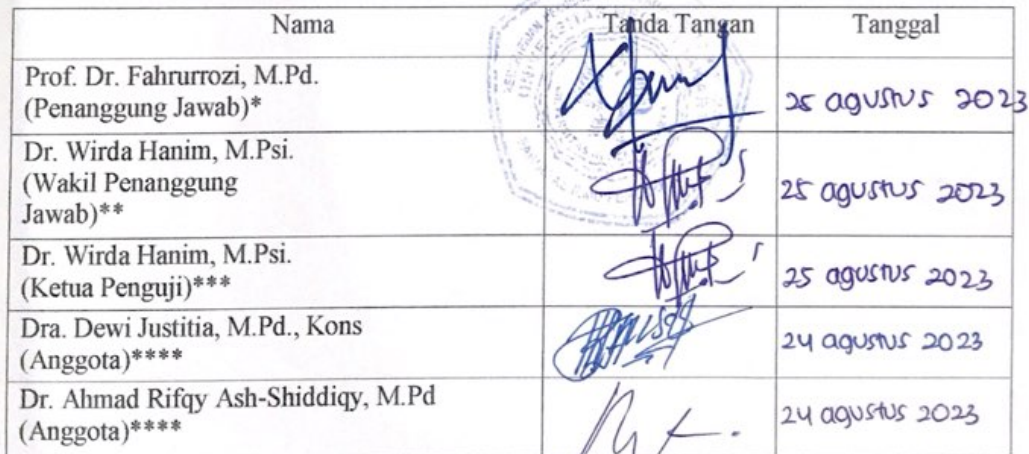 Nama Tanda Tangan Tanggal
Prof. Dr. Fahrurrozi, M.Pd.
(Penanggung Jawab)* 25 agustus 2023
Dr. Wirda Hanim, M.Psi.
(Wakil Penanggung
Jawab)** 25 agustus 2023
Dr. Wirda Hanim, M.Psi.
(Ketua Penguji)*** 25 agustus 2023
Dra. Dewi Justitia, M.Pd., Kons
(Anggota)**** 24 agustus 2023
Dr. Ahmad Rifqy Ash-Shiddiqy, M.Pd
(Anggota)**** 24 agustus 2023